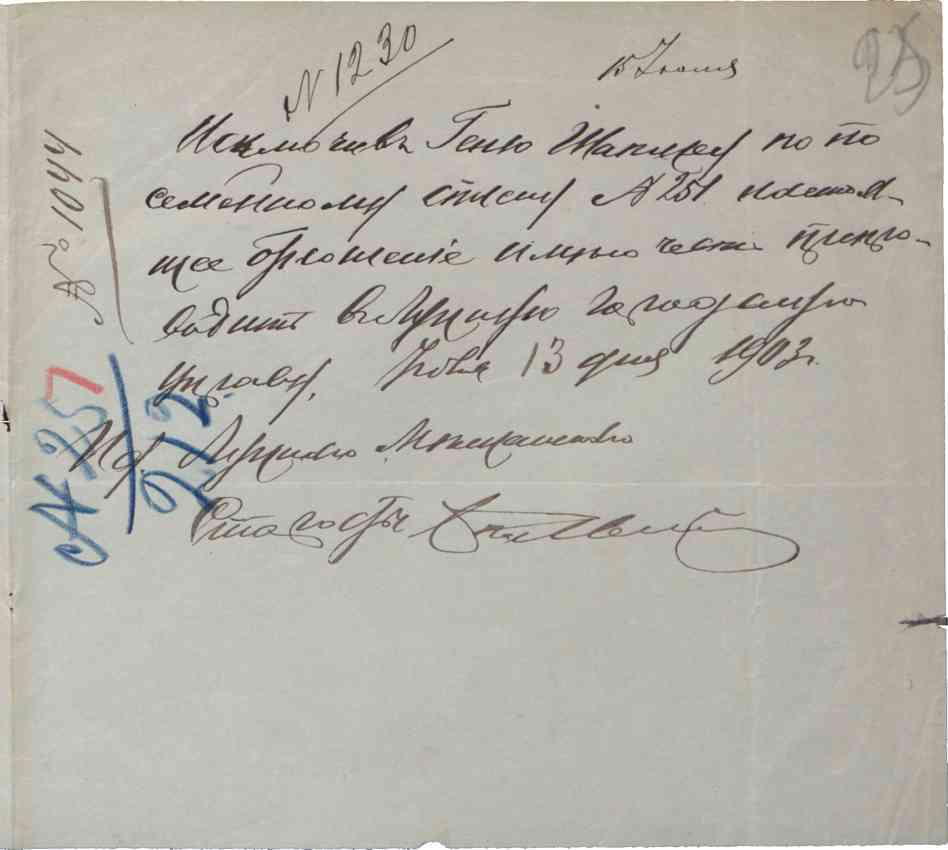 N 1230
15 Июня
25
Исключивъ Геню по по
семейному списку № 251. настоя-
щее отношеніе имѣю честь препро-
водить въ Луцкую городскую
управу, Іюня 13 дня 1903 г.
Луцкаго Мѣщанскаго
Старосты
№ 1044
№ 257
212.